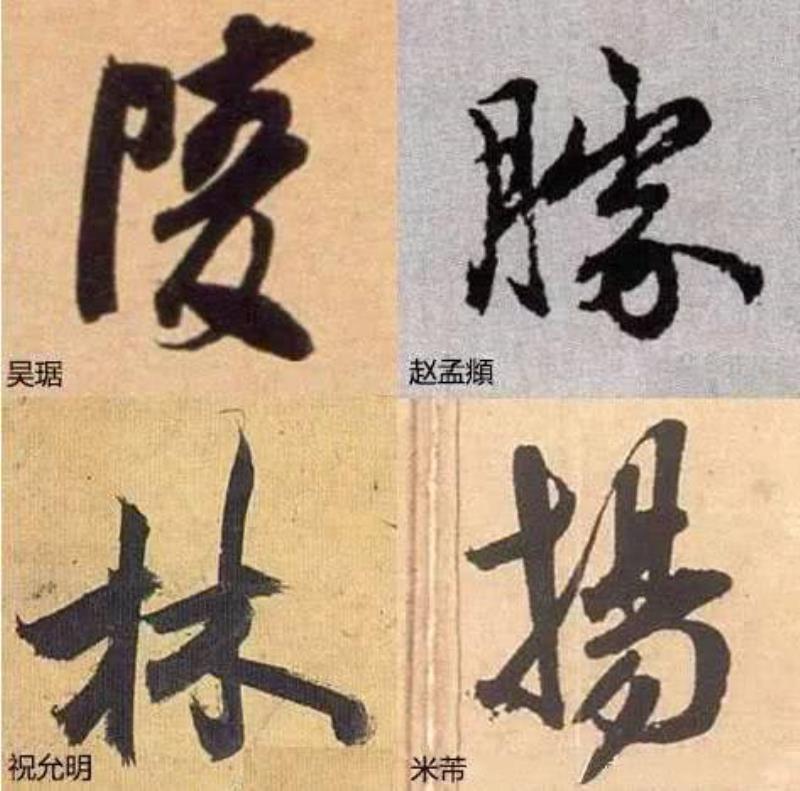 陵
吴琚
赵孟頫
林
祝允明
揚
米芾